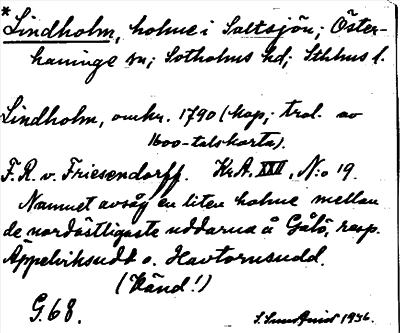 * Lindholm, holme i Saltsjön; Öster-
haninge sn; Sotholms hd; Sthlms l.
Lindholm, omkr. 1790 (Kop, trol. av
1600-talskarta).
F. R. v. Friesendorff. Kr.A. XXII, N:o 19.
Namnet avsåg en liten holme mellan
de nordöstligaste uddarna å Gålö, resp.
Äppelviksudd o. Havtornsudd.
(Vänd!)
G. 68.
1936.